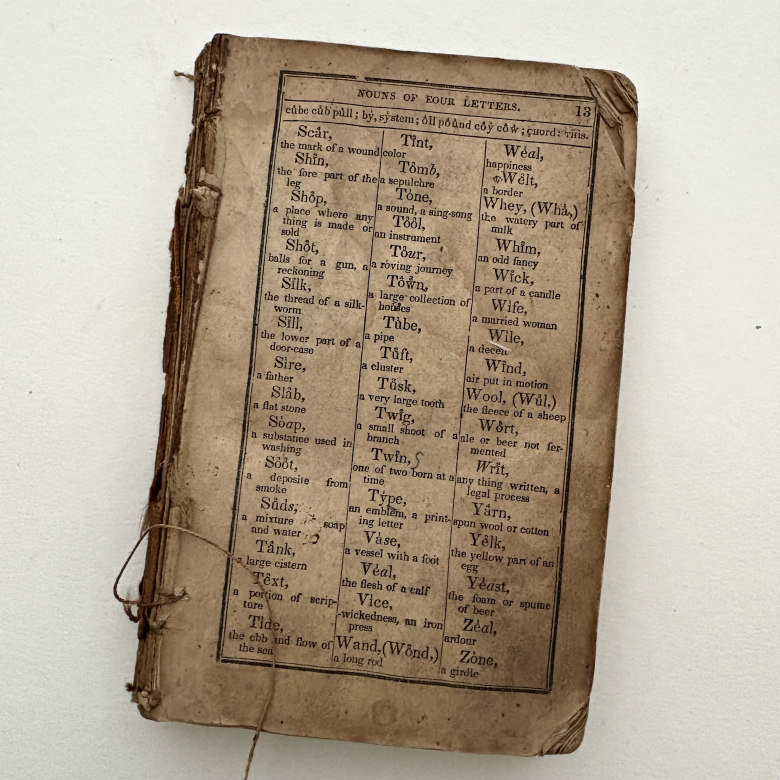 NOUNS OF FOUR LETTERS. 13
cůbe cŭb půll; by, sy̌stem; ŏ̂il pŏ̂und cŏ̂y̆ cŏ̂w̆; çhord: riſis.
Scår,
the mark of a wound
Shĭn,
the fore part of the
leg
Shŏp,
a place where any
thing is made or
sold
Shŏt,
balls for a gun, a
reckoning
Sĭlk,
the thread of a silk-
worm
Sĭll,
the lower part of a
door-case
Sire,
a father
Slăb,
a flat stone
Sòap,
a substance used in
washing
Sôôt,
a deposite from
smoke
Sŭds,
a mixture soap
and water
Tănk,
a large cistern
Tĕxt,
a portion of scrip-
ture
Tide,
the ebb and flow of
the sea
Tĭnt,
color
Tômb,
a sepulchre
Tòne,
a sound, a sing-song
Tôôl,
an instrument
Tôur,
a roving journey
Tŏ̂wn,
a large collection of
houses
Tùbe,
a pipe
Tŭft,
a cluster
Tŭsk,
a very large tooth
Twĭg,
a small shoot of a
branch
Twĭn,
one of two born at a
time
Type,
an emblem, a print-
ing letter
Våse,
a vessel with a foot
Vèal,
the flesh of a calf
Vice,
wickedness, an iron
press
Wand, (Wŏnd,)
a long rod
Wèal,
happiness
Wĕlt,
a border
Whey, (Whà,)
the watery part of
milk
Whĭm,
an odd fancy
Wĭck,
a part of a candle
Wife,
a married woman
Wile,
a deceit
Wĭnd,
air put in motion
Wool, (Wůl,)
the fleece of a sheep
Wŏrt,
ale or beer not fer-
mented
Wrĭt,
any thing written, a
legal process
Yårn,
spun wool or cotton
Yĕlk,
the yellow part of an
egg
Yèast,
the foam or spume
of beer
Zèal,
ardour
Zòne,
a girdle